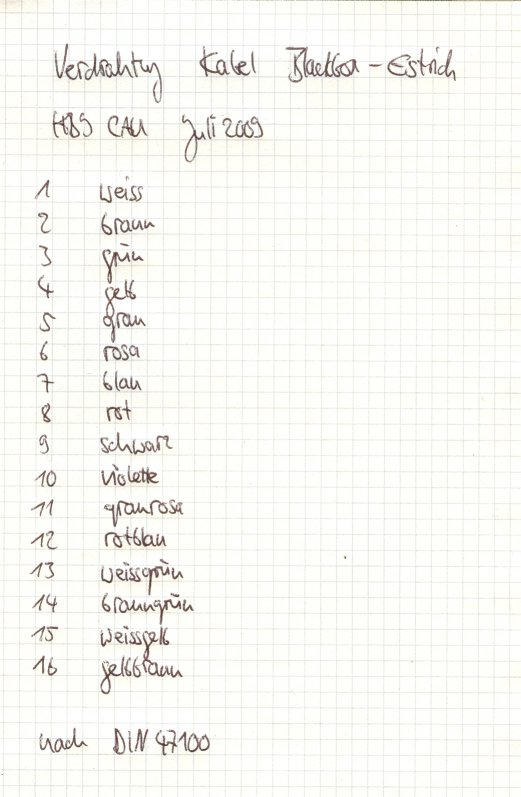 Verdrahtung Kabel Blackbox - Estrich
HBS CAU Juli 2009
1 weiss
2 braun
3 grün
4 gelb
5 grau
6 rosa
7 blau
8 rot
9 schwarz
10 violette
11 graurosa
12 rotblau
13 weissgrün
14 braungrün
15 weissgelb
16 gelbbraun
nach DIN 47100